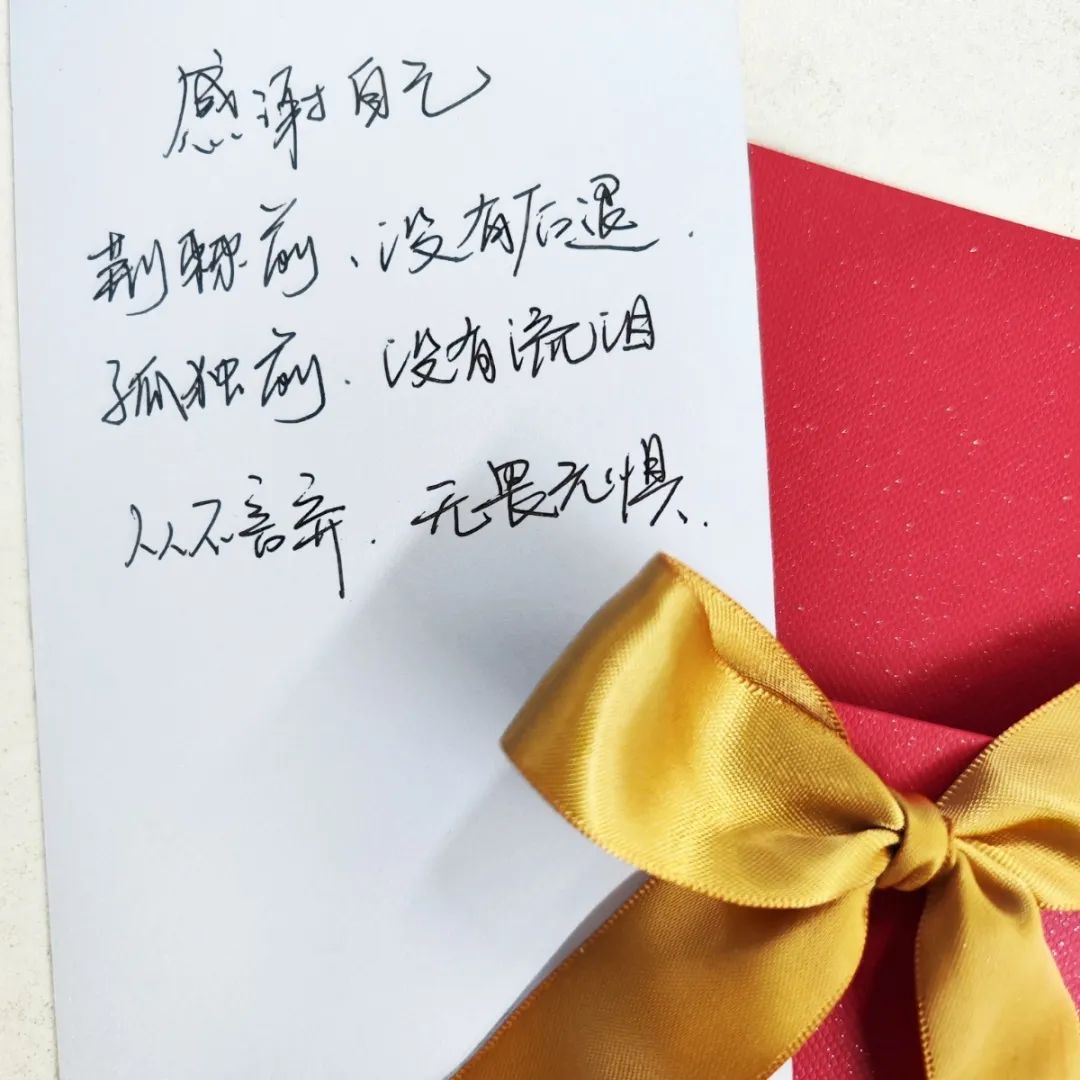 感谢自己
荆棘前、没有后退.
孤独前.没有流泪
从不言弃.无畏无惧.